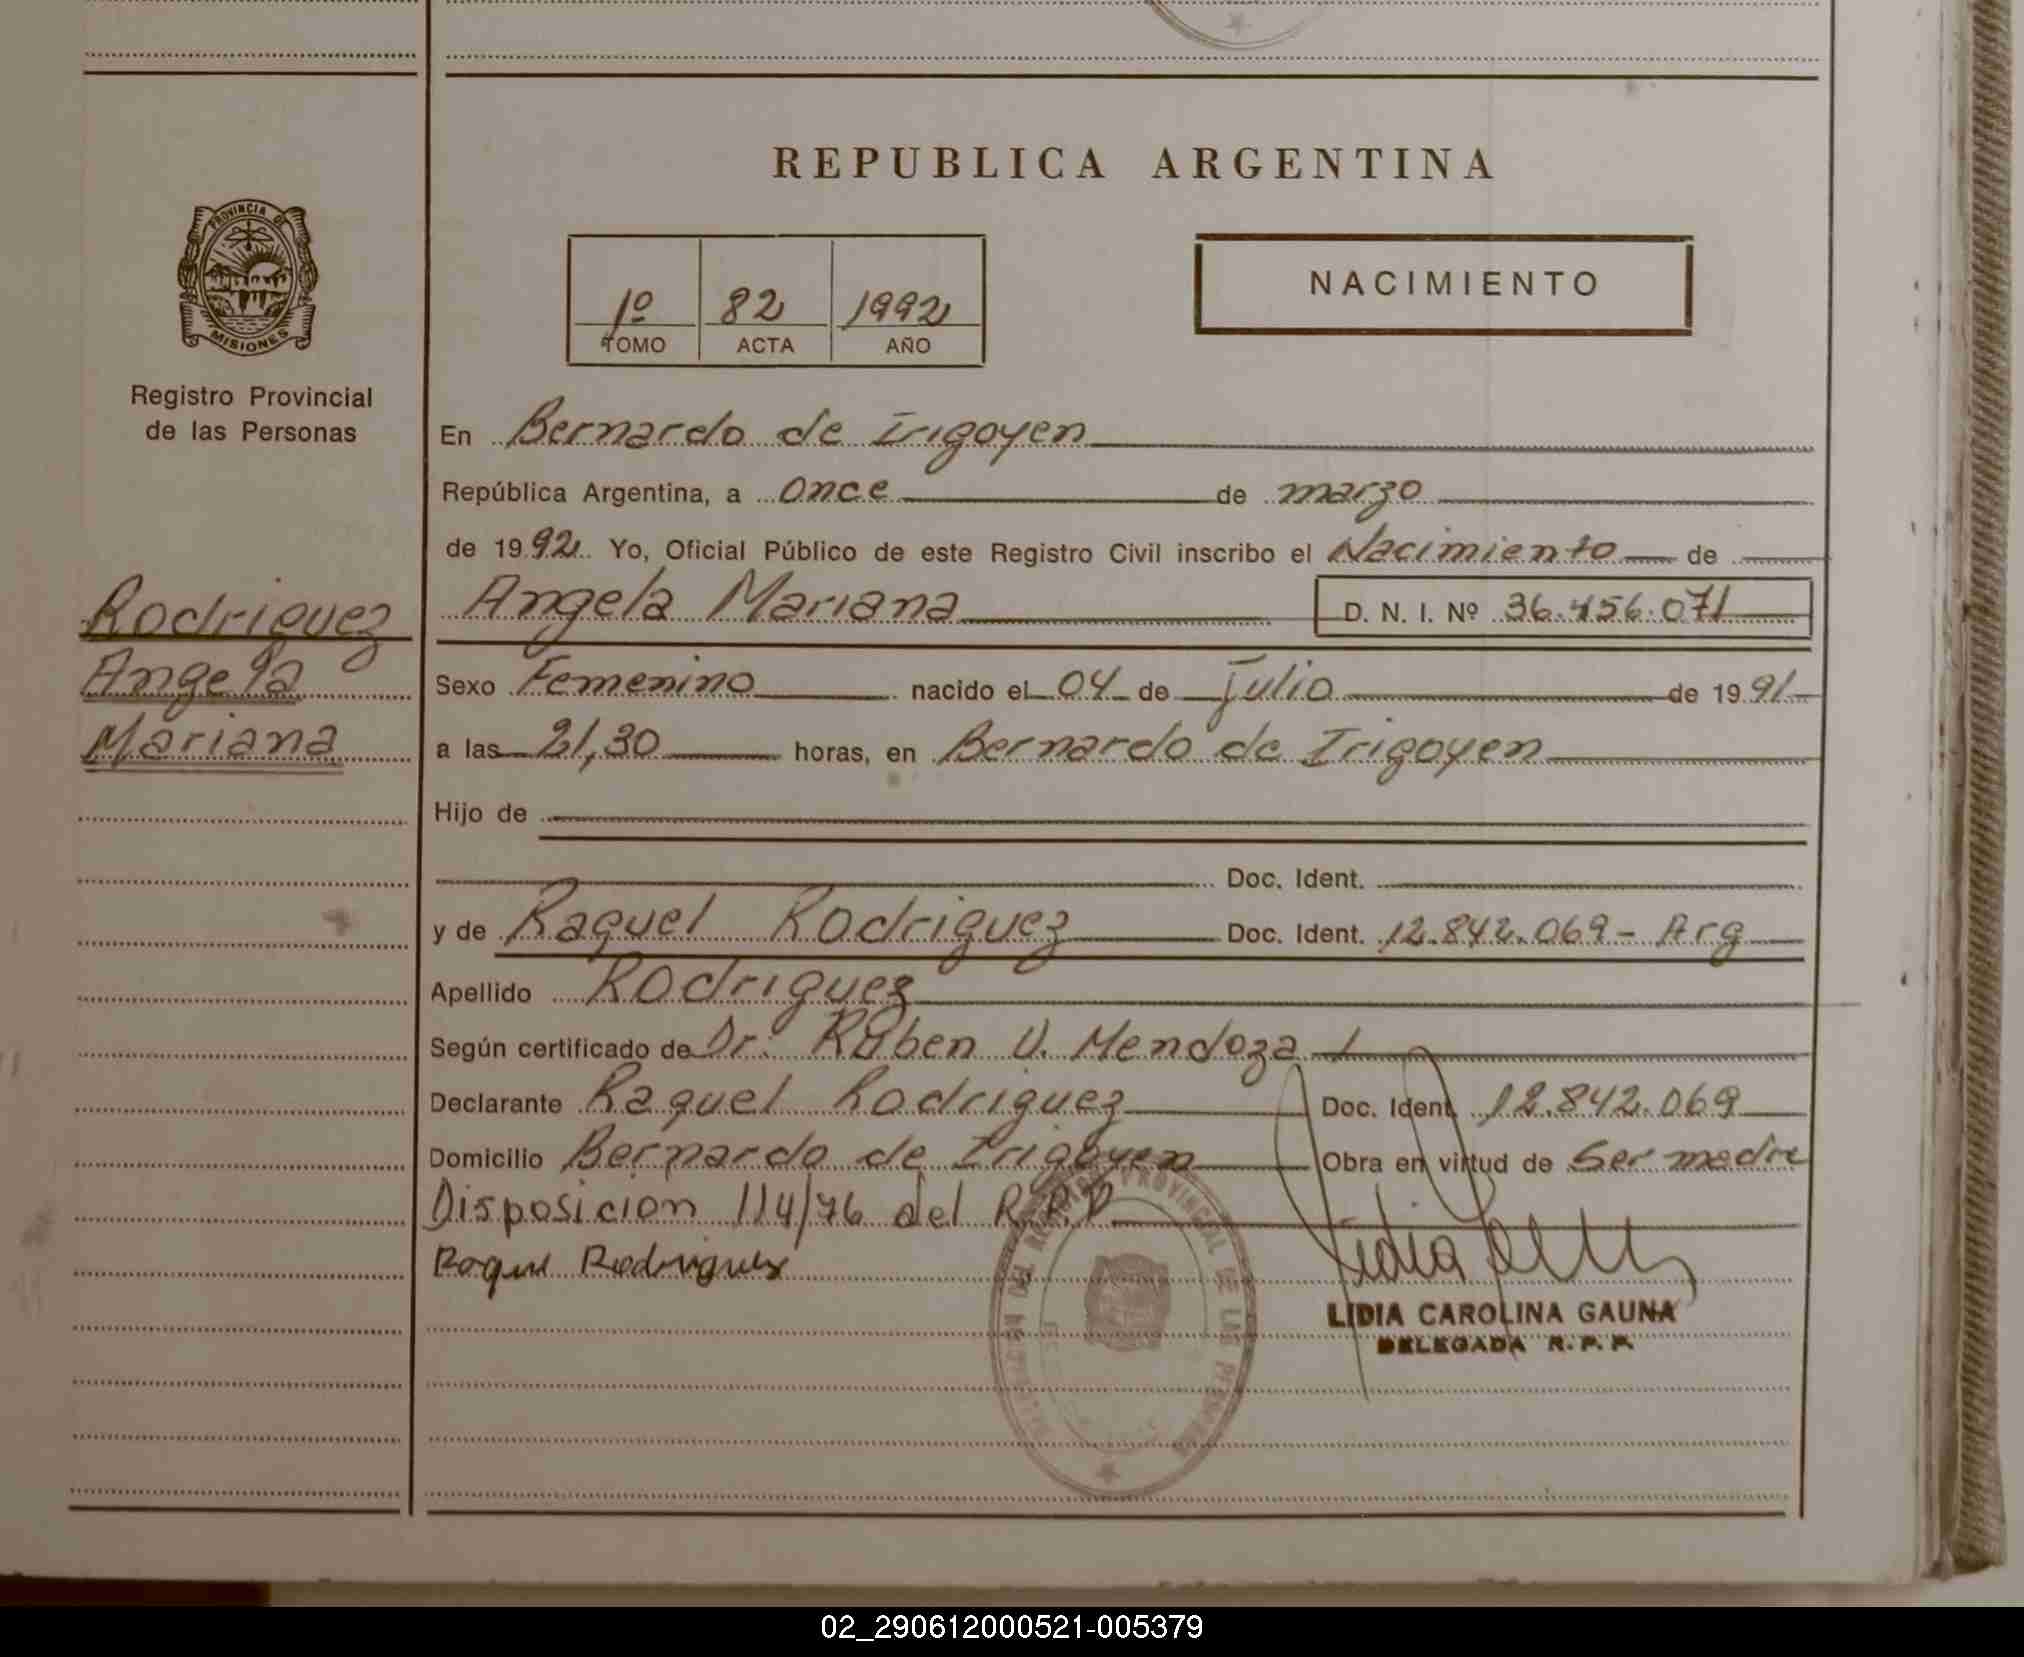 REPUBLICA ARGENTINA
PROVINCIA DE
MISIONES
Registro Provincial
de las Personas
1º 82 1992
TOMO ACTA AÑO
NACIMIENTO
En Bernardo de Irigoyen
República Argentina, a once de marzo
de 1992 Yo, Oficial Público de este Registro Civil inscribo el Nacimiento de
Rodriguez
Angela
Mariana
Angela Mariana D. N. I. Nº 36.456.071
Sexo Femenino nacido el 04 de Julio de 1991
a las 21,30 horas, en Bernardo de Irigoyen
Hijo de
Doc. Ident.
y de Raquel Rodriguez Doc. Ident. 12.842.069 - Arg
Apellido Rodriguez
Según certificado de Dr. Ruben V. Mendoza
Declarante Raquel Rodriguez Doc. Ident. 12.842.069
Domicilio Bernardo de Irigoyen Obra en virtud de ser madre
Disposicion 114/76 del R.R.P
Raquel Rodriguez
PROVINCIAL DE LAS
LIDIA CAROLINA GAUNA
DELEGADA R. P. P.
02_290612000521-005379